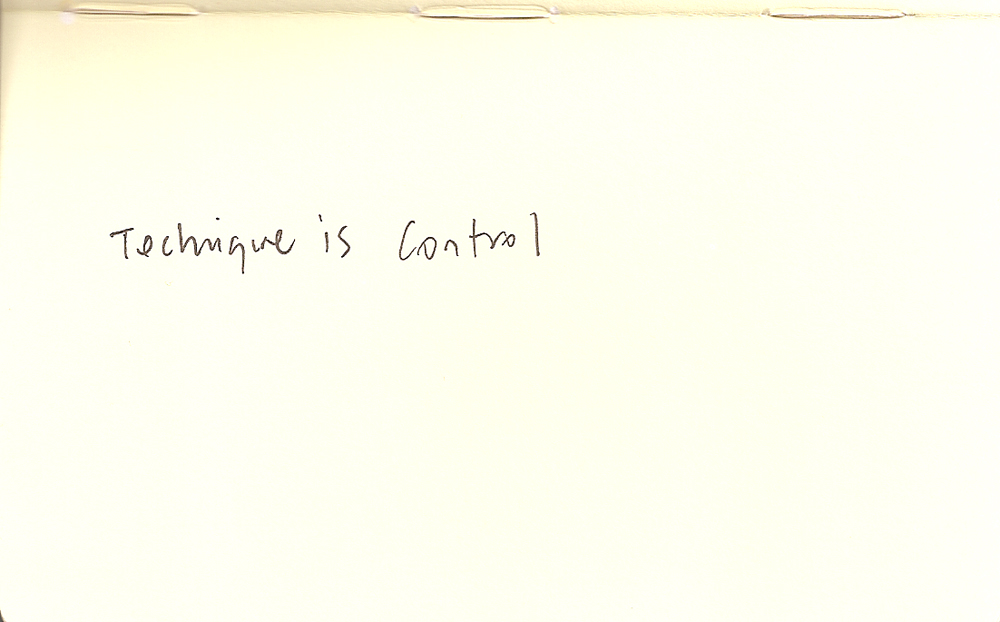 Technique is Control